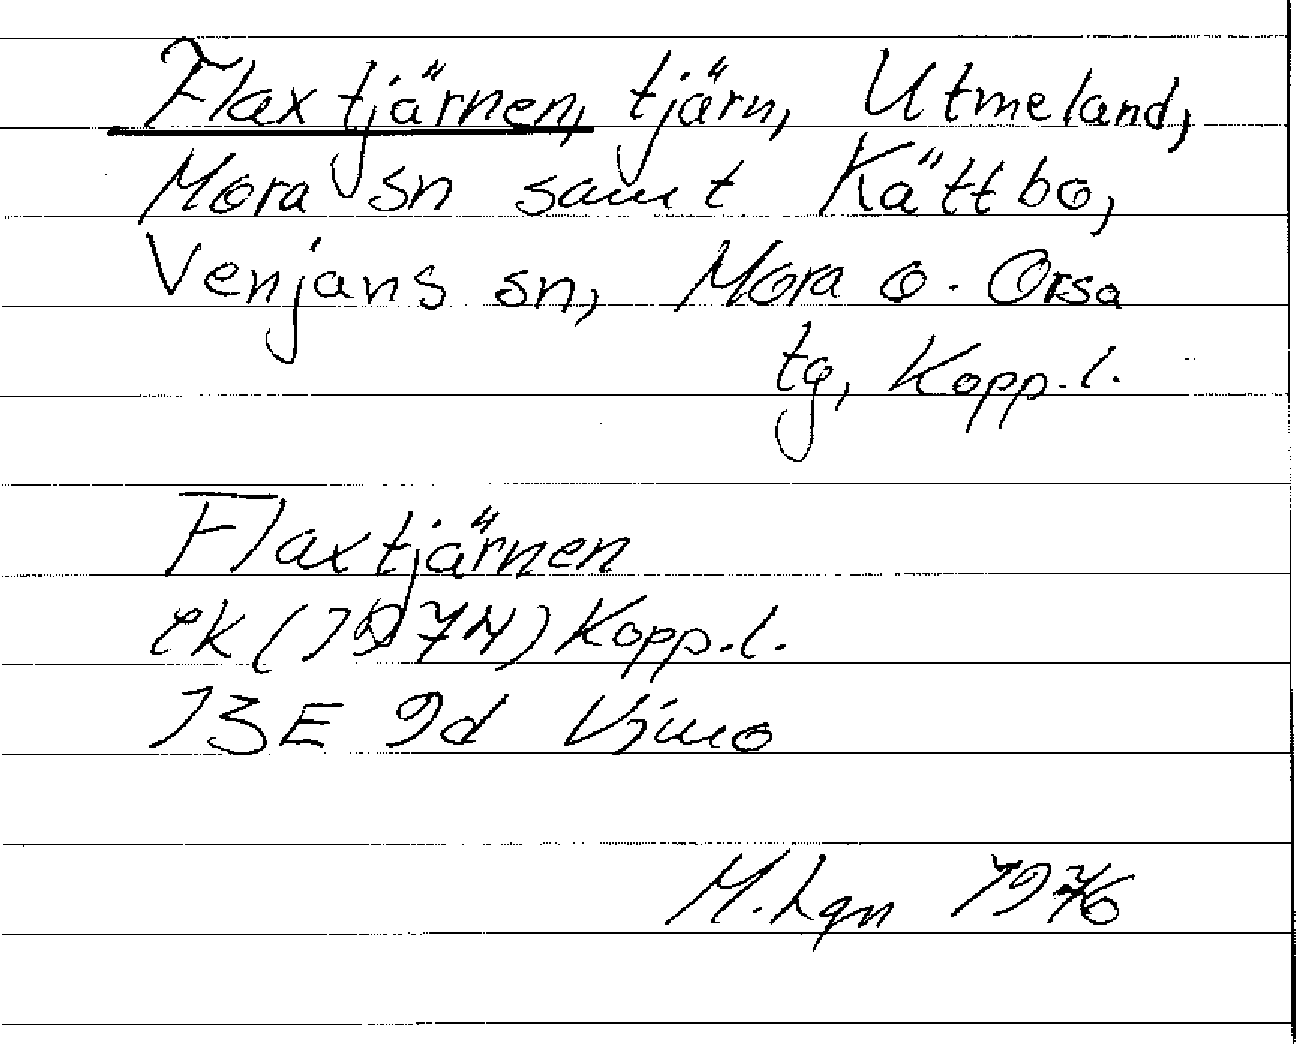 Flaxtjärnen, tjärn, Utmeland,
Mora sn samt Kättbo,
Venjans sn, Mora o. Orsa
tg, Kopp.l.
Flaxtjärnen
ek (1974) Kopp.l.
13E 9d Vimo
M. Lgn 1976